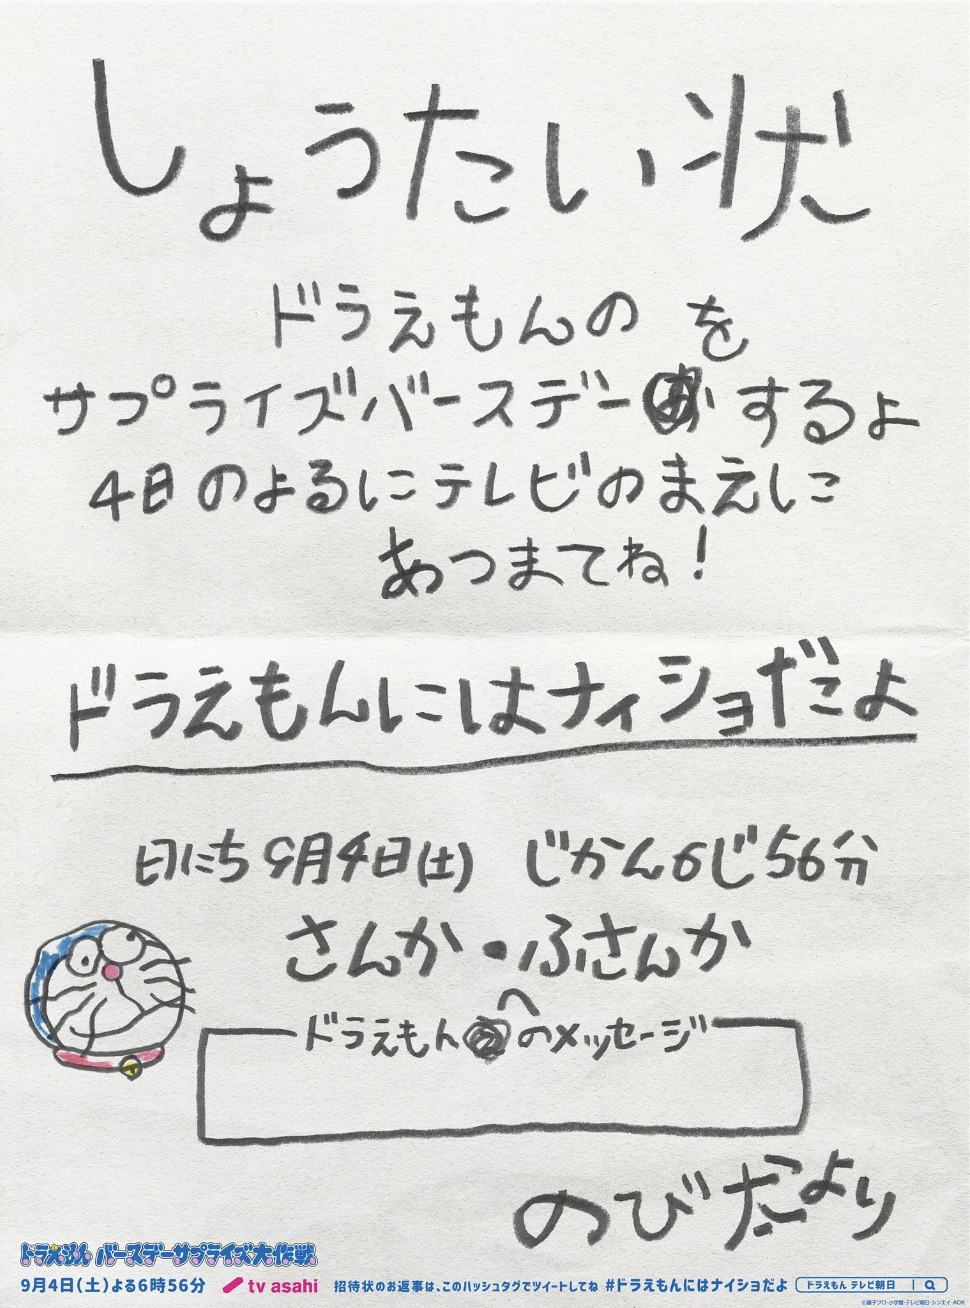 しょうたい状
ドラえもんの
サプライズバースデーをするよ
4日のよるにテレビのまえに
あつまてね!
ドラえもんにはナィショだよ
日にち9月4日(土) じかん6じ56分
さんか・ふさんか
ドラえもんへのメッセージ
のびたより
ドラえもん バースデーサプライズ大作戦
9月4日(土)よる6時56分 tv asahi 招待状のお返事は、このハッシュタグでツイートしてね #ドラえもんにはナイショだよ ドラえもん テレビ朝日
©藤子プロ・小学館・テレビ朝日・シンエイ・ADK